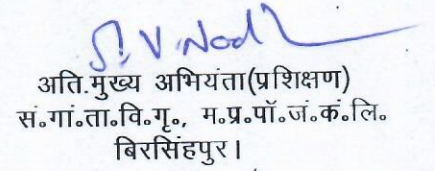 अति.मुख्य अभियंता(प्रशिक्षण)
सं॰गां॰ता॰वि॰गृ॰, म॰प्र॰पॉ॰जं॰कं॰लि॰
बिरसिंहपुर।